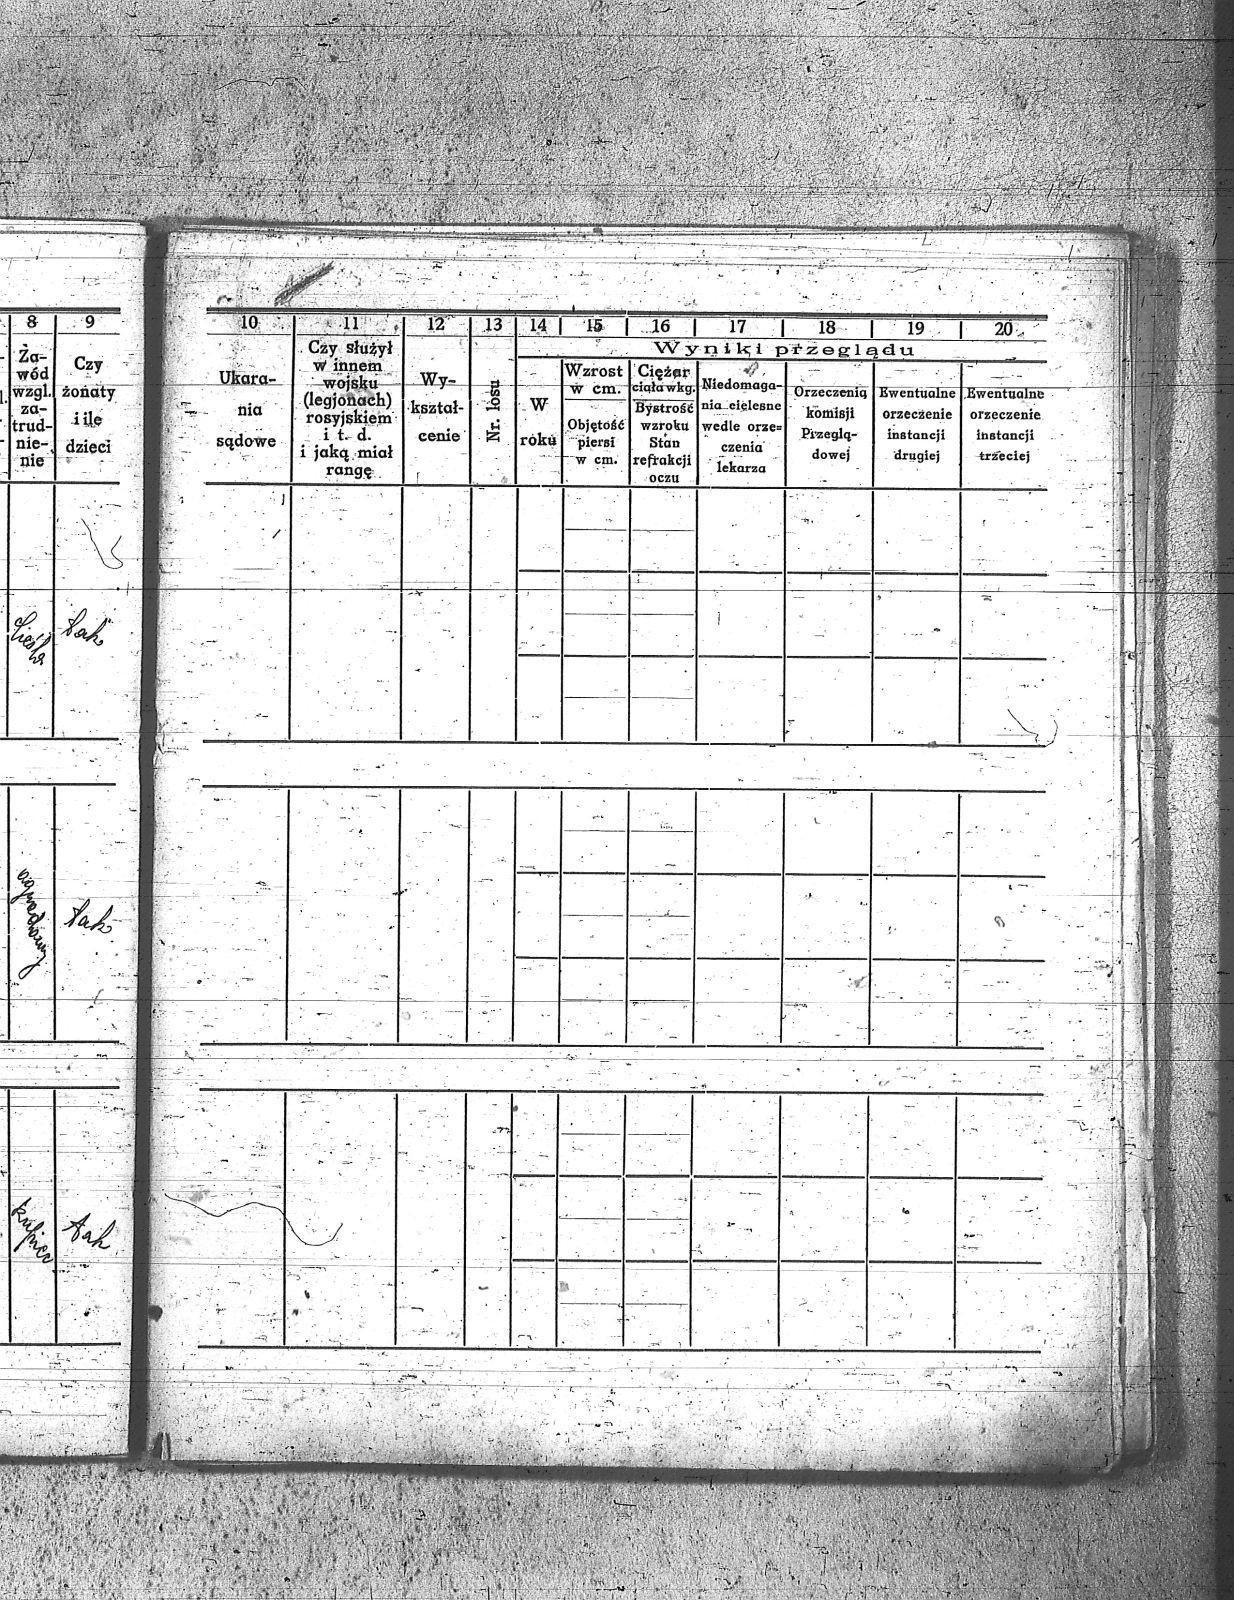 8 9
Za-
wód
wzgl.
za-
trud-
nie-
nie
Czy
żonaty
i ile
dzieci
Cieśla tak
tak
kupiec tak
10 11 12 13 14 15 16 17 18 19 20
Wyniki przeglądu
Ukara-
nia
sądowe
Czy służył
w innem
wojsku
(legjonach)
rosyjskiem
i t. d.
i jaką miał
rangę
Wy-
kształ-
cenie
Nr. losu
W
roku
Wzrost
w cm.
Objętość
piersi
w cm.
Ciężar
ciała w kg.
Bystrość
wzroku
Stan
refrakcji
oczu
Niedomaga-
nia cielesne
wedle orze-
czenia
lekarza
Orzeczenia
komisji
Przeglą-
dowej
Ewentualne
orzeczenie
instancji
drugiej
Ewentualne
orzeczenie
instancji
trzeciej